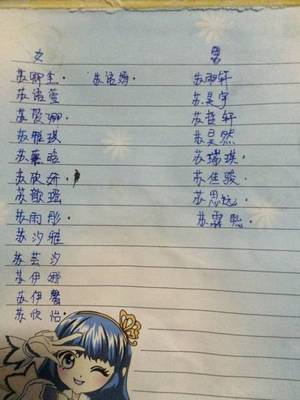 女 男
苏卿圭· 苏语嫣· 苏珈轩
苏语萱 苏昊宇
苏爱娜 苏哲轩
苏雅琪 苏昊然
苏 晗 苏瑞琪·
苏欣妍· 苏佳骏·
苏歆瑶 苏思 ·
苏雨彤· 苏霖 ·
苏汐雅
苏芸汐
苏伊娜
苏伊馨
苏欣怡·